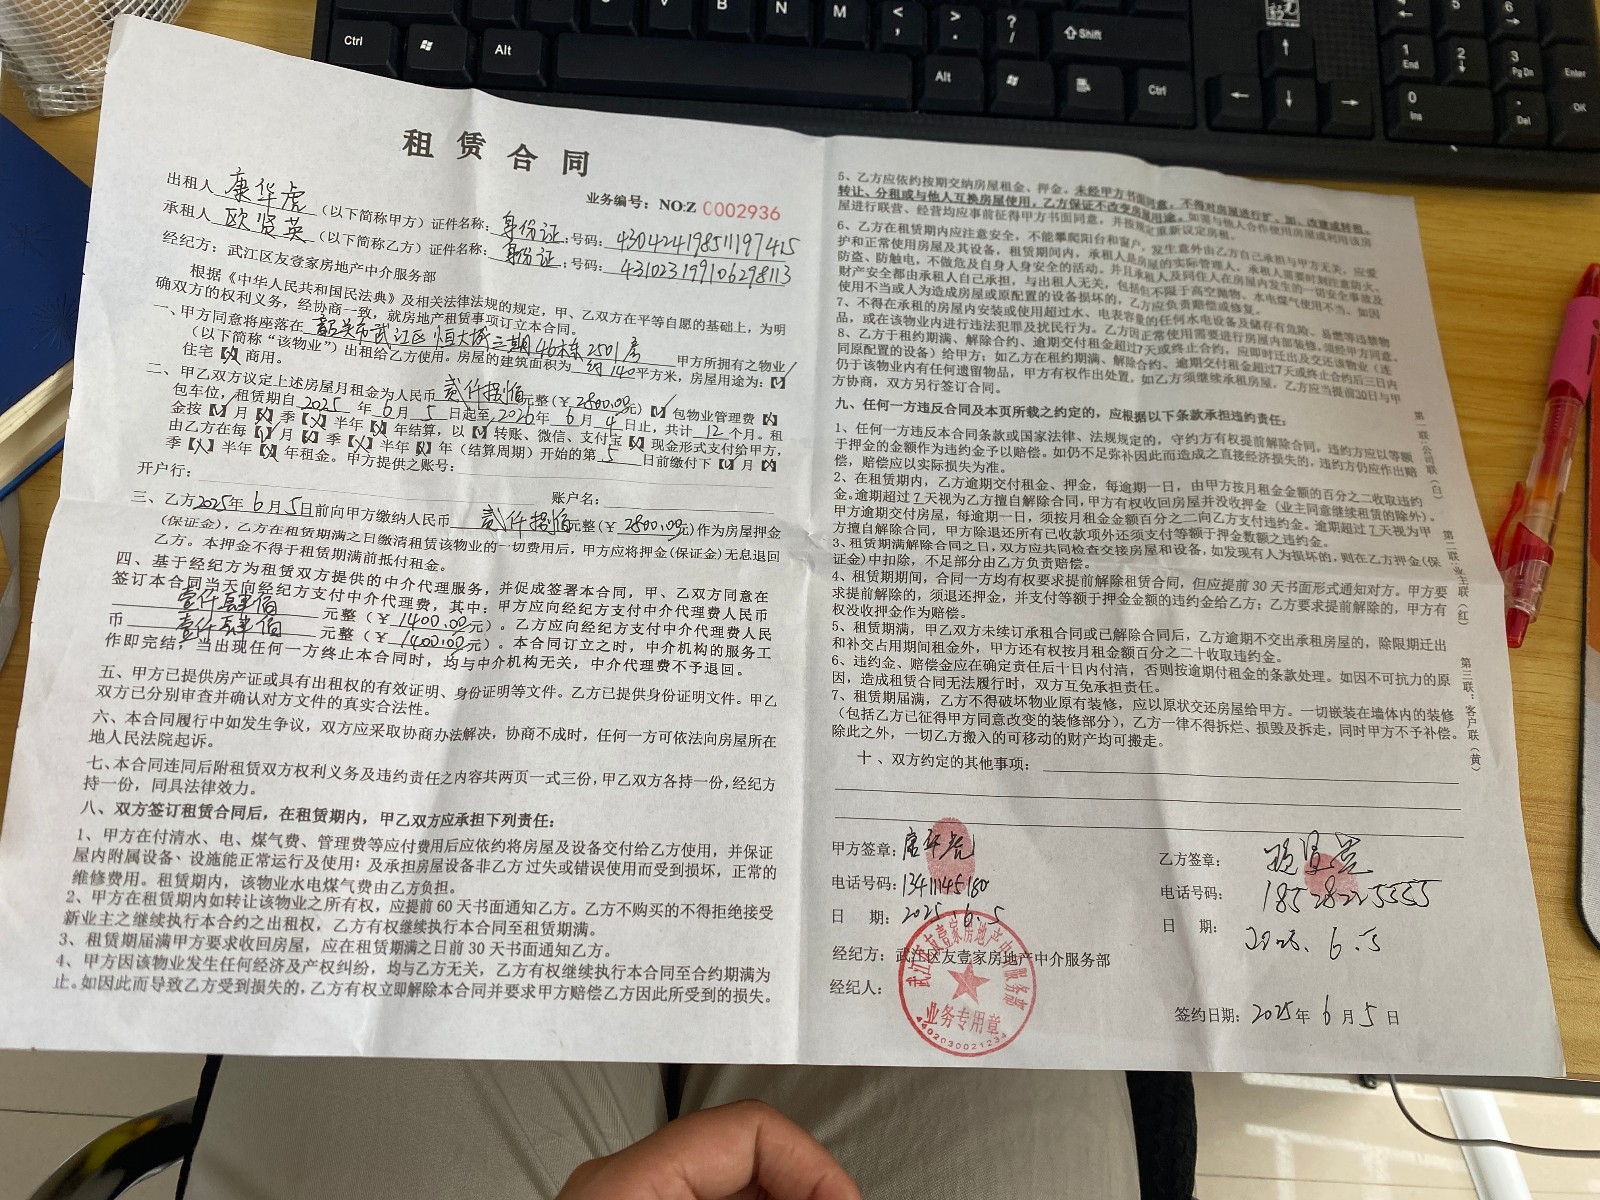 租 赁 合 同
业务编号：NO:Z 0002936
出租人 康华虎 （以下简称甲方）证件名称：身份证；号码：430424198511197415
承租人 欧贤英 （以下简称乙方）证件名称：身份证；号码：431023199106298113
经纪方：武江区友壹家房地产中介服务部
根据《中华人民共和国民法典》及相关法律法规的规定，甲、乙双方在平等自愿的基础上，为明
确双方的权利义务，经协商一致，就房地产租赁事项订立本合同。
一、甲方同意将座落在 韶关市武江区恒大城三期46栋2501房 甲方所拥有之物业
（以下简称“该物业”）出租给乙方使用。房屋的建筑面积为 约140 平方米，房屋用途为：【✓】
住宅【✗】商用。
二、甲乙双方议定上述房屋月租金为人民币 贰仟捌佰 元整（￥2800.00元）【✓】包物业管理费【✗】
包车位，租赁期自2025年6月5日起至2026年6月4日止，共计12个月。租
金按【✓】月【✗】季【✗】半年【✗】年结算，以【✓】转账、微信、支付宝【✗】现金形式支付给甲方，
由乙方在每【✓】月【✗】季【✗】半年【✗】年（结算周期）开始的第 5 日前缴付下【✓】月【✗】
季【✗】半年【✗】年租金。甲方提供之账号：
开户行： 账户名：
三、乙方2025年6月5日前向甲方缴纳人民币 贰仟捌佰 元整（￥2800.00元）作为房屋押金
（保证金），乙方在租赁期满之日缴清租赁该物业的一切费用后，甲方应将押金（保证金）无息退回
乙方。本押金不得于租赁期满前抵付租金。
四、基于经纪方为租赁双方提供的中介代理服务，并促成签署本合同，甲、乙双方同意在
签订本合同当天向经纪方支付中介代理费，其中：甲方应向经纪方支付中介代理费人民币
壹仟肆佰 元整（￥1400.00元）。乙方应向经纪方支付中介代理费人民
币 壹仟肆佰 元整（￥1400.00元）。本合同订立之时，中介机构的服务工
作即完结；当出现任何一方终止本合同时，均与中介机构无关，中介代理费不予退回。
五、甲方已提供房产证或具有出租权的有效证明、身份证明等文件。乙方已提供身份证明文件。甲乙
双方已分别审查并确认对方文件的真实合法性。
六、本合同履行中如发生争议，双方应采取协商办法解决，协商不成时，任何一方可依法向房屋所在
地人民法院起诉。
七、本合同连同后附租赁双方权利义务及违约责任之内容共两页一式三份，甲乙双方各持一份，经纪方
持一份，同具法律效力。
八、双方签订租赁合同后，在租赁期内，甲乙双方应承担下列责任：
1、甲方在付清水、电、煤气费、管理费等应付费用后应依约将房屋及设备交付给乙方使用，并保证
屋内附属设备、设施能正常运行及使用；及承担房屋设备非乙方过失或错误使用而受到损坏，正常的
维修费用。租赁期内，该物业水电煤气费由乙方负担。
2、甲方在租赁期内如转让该物业之所有权，应提前60天书面通知乙方。乙方不购买的不得拒绝接受
新业主之继续执行本合约之出租权，乙方有权继续执行本合同至租赁期满。
3、租赁期届满甲方要求收回房屋，应在租赁期满之日前30天书面通知乙方。
4、甲方因该物业发生任何经济及产权纠纷，均与乙方无关，乙方有权继续执行本合同至合约期满为
止。如因此而导致乙方受到损失的，乙方有权立即解除本合同并要求甲方赔偿乙方因此所受到的损失。
5、乙方应依约按期交纳房屋租金、押金。未经甲方书面同意，不得对房屋进行扩、加、改建或转租、
转让、分租或与他人互换房屋使用，乙方保证不改变房屋用途。如需与他人合作使用房屋或利用该房
屋进行联营、经营均应事前征得甲方书面同意，并按规定重新议定房租。
6、乙方在租赁期内应注意安全，不能攀爬阳台和窗户，发生意外由乙方自己承担与甲方无关，应爱
护和正常使用房屋及其设备，租赁期间内，承租人是房屋的实际管理人，承租人需要时刻注意防火、
防盗、防触电，不做危及自身人身安全的活动。并且承租人及同住人在房屋内发生的一切安全事故及
财产安全都由承租人自己承担，与出租人无关，包括但不限于高空抛物、水电煤气使用不当。如因
使用不当或人为造成房屋或原配置的设备损坏的，乙方应负责赔偿或修复。
7、不得在承租的房屋内安装或使用超过水、电表容量的任何水电设备及储存有危险、易燃等违禁物
品，或在该物业内进行违法犯罪及扰民行为。乙方因正常使用需要进行房屋内部装修，须经甲方同意。
8、乙方于租约期满、解除合约、逾期交付租金超过7天或终止合约，应即时迁出及交还该物业（连
同原配置的设备）给甲方；如乙方在租约期满、解除合约、逾期交付租金超过7天或终止合约后三日内
仍于该物业内有任何遗留物品，甲方有权作出处置。如乙方须继续承租房屋，乙方应当提前30日与甲
方协商，双方另行签订合同。
九、任何一方违反合同及本页所载之约定的，应根据以下条款承担违约责任：
1、任何一方违反本合同条款或国家法律、法规规定的，守约方有权提前解除合同，违约方应以等额
于押金的金额作为违约金予以赔偿。如仍不足弥补因此而造成之直接经济损失的，违约方仍应作出赔
偿，赔偿应以实际损失为准。
2、在租赁期内，乙方逾期交付租金、押金，每逾期一日，由甲方按月租金金额的百分之二收取违约
金。逾期超过7天视为乙方擅自解除合同，甲方有权收回房屋并没收押金（业主同意继续租赁的除外）。
甲方逾期交付房屋，每逾期一日，须按月租金金额百分之二向乙方支付违约金。逾期超过7天视为甲
方擅自解除合同，甲方除退还所有已收款项外还须支付等额于押金数额之违约金。
3、租赁期满解除合同之日，双方应共同检查交接房屋和设备，如发现有人为损坏的，则在乙方押金（保
证金）中扣除，不足部分由乙方负责赔偿。
4、租赁期期间，合同一方均有权要求提前解除租赁合同，但应提前30天书面形式通知对方。甲方要
求提前解除的，须退还押金，并支付等额于押金金额的违约金给乙方；乙方要求提前解除的，甲方有
权没收押金作为赔偿。
5、租赁期满，甲乙双方未续订承租合同或已解除合同后，乙方逾期不交出承租房屋的，除限期迁出
和补交占用期间租金外，甲方还有权按月租金额百分之二十收取违约金。
6、违约金、赔偿金应在确定责任后十日内付清，否则按逾期付租金的条款处理。如因不可抗力的原
因，造成租赁合同无法履行时，双方互免承担责任。
7、租赁期届满，乙方不得破坏物业原有装修，应以原状交还房屋给甲方。一切嵌装在墙体内的装修
（包括乙方已征得甲方同意改变的装修部分），乙方一律不得拆烂、损毁及拆走，同时甲方不予补偿。
除此之外，一切乙方搬入的可移动的财产均可搬走。
十、双方约定的其他事项：
第一联：公司联（白）
第二联：业主联（红）
第三联：客户联（黄）
甲方签章：康华虎
电话号码：13411145180
日 期：2025 6.5
乙方签章：
电话号码：18528225355
日 期：2025.6.5
经纪方：武江区友壹家房地产中介服务部
经纪人：
签约日期：2025年6月5日
武江区友壹家房地产中介服务部
业务专用章
4402030021234
Ctrl
Alt
B
N
M
<
,
>
.
?
/
Shift
Alt
Ctrl
1
End
2
3
Pg Dn
Enter
0
Ins
.
Del
OK
4
5
6